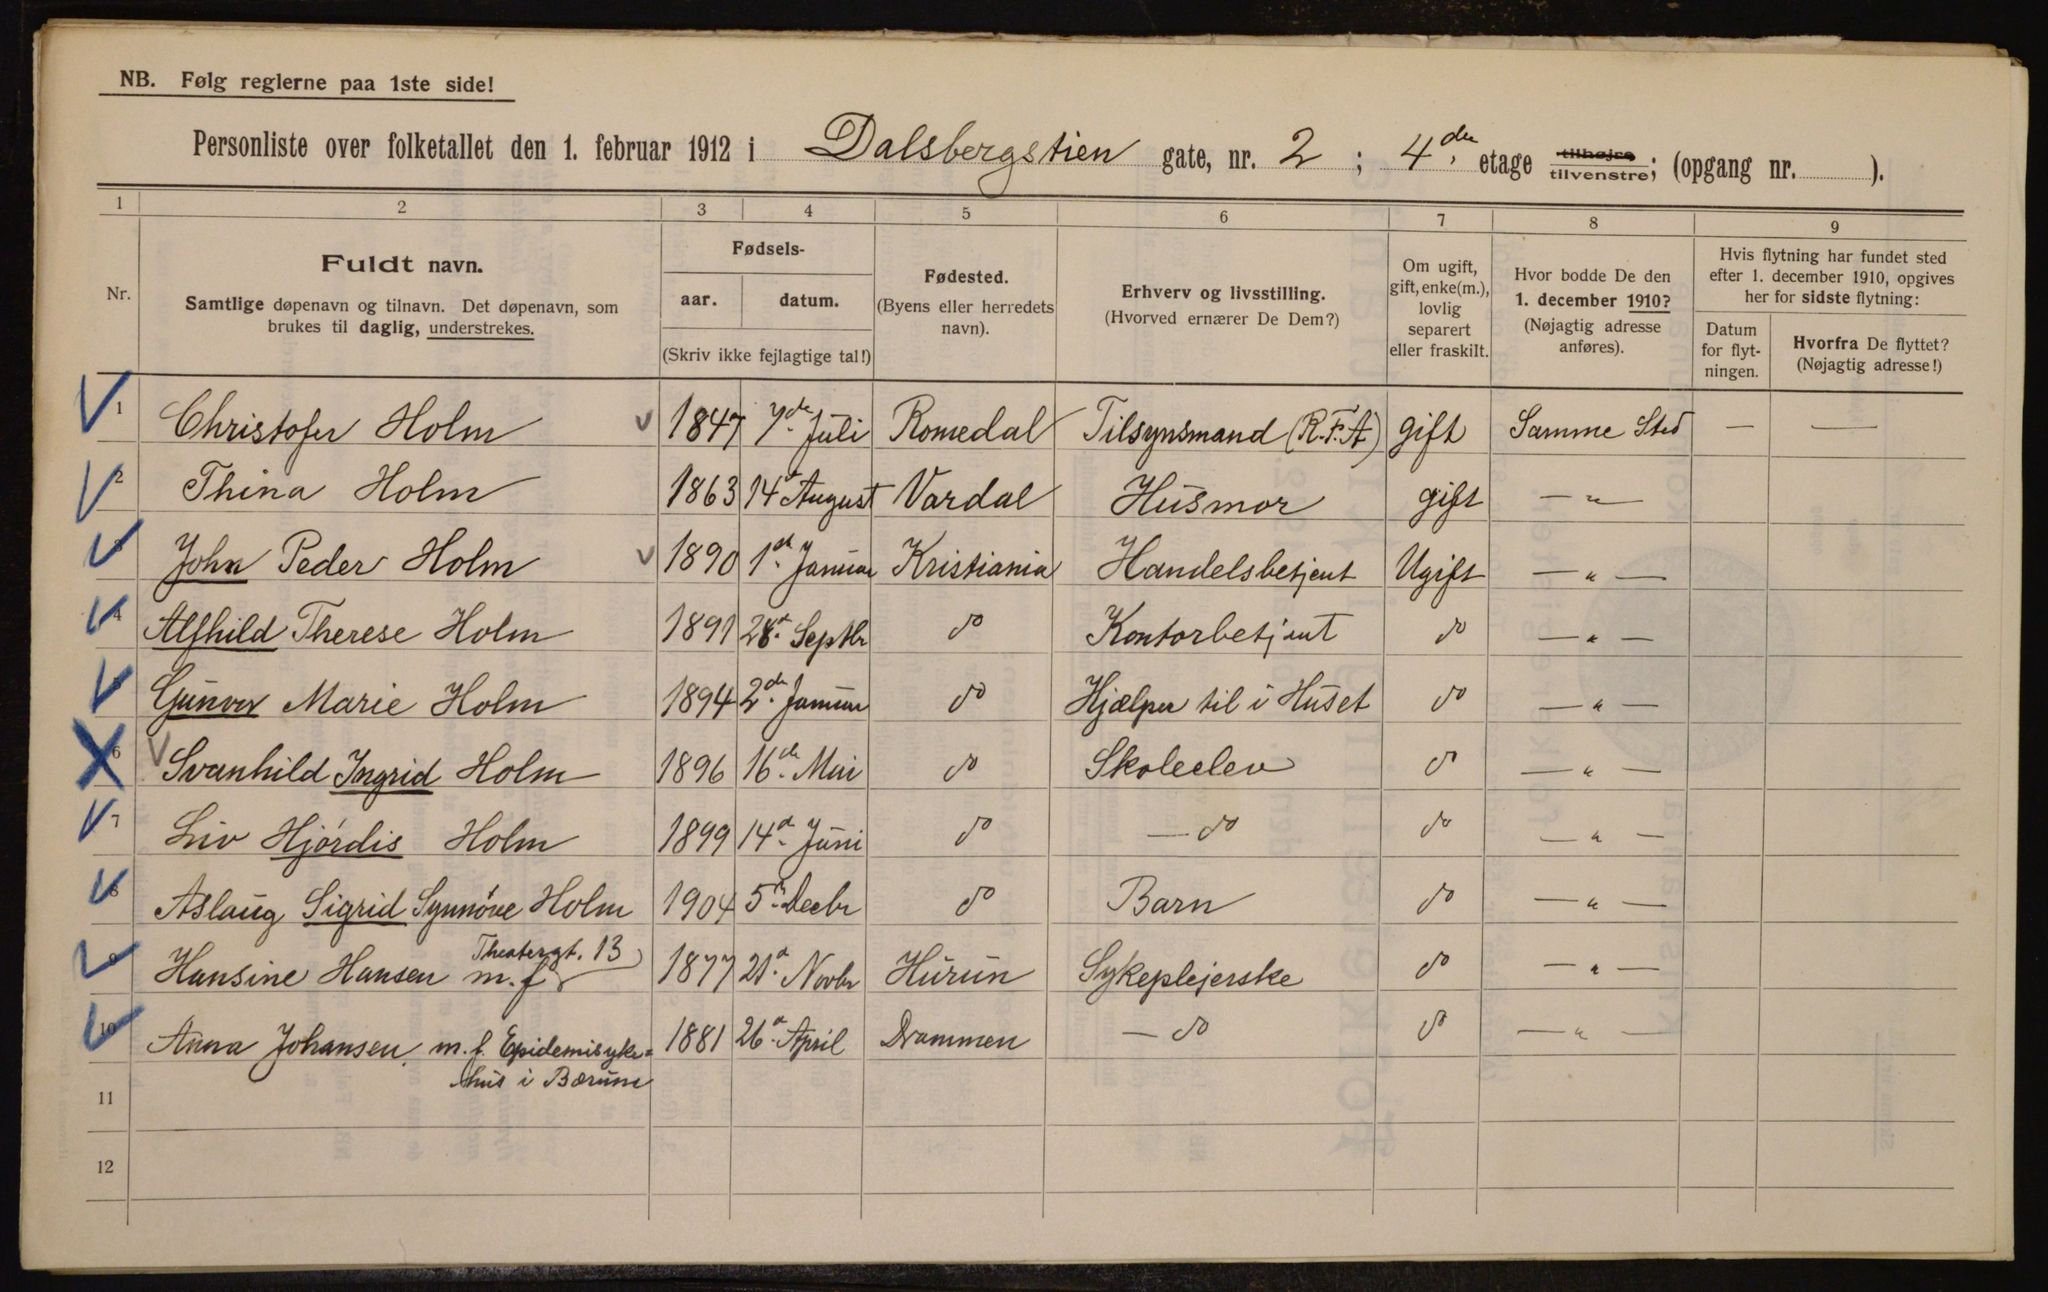 NB. Følg reglerne paa 1ste side!
Personliste over folketallet den 1. februar 1912 i Dalsbergstien gate, nr. 2 ; 4de etage tilhøjre tilvenstre; (opgang nr. ).
1 2 3 4 5 6 7 8 9
Nr.
Fuldt navn.
Samtlige døpenavn og tilnavn. Det døpenavn, som
brukes til daglig, understrekes.
Fødsels-
aar. datum.
(Skriv ikke fejlagtige tal!)
Fødested.
(Byens eller herredets
navn).
Erhverv og livsstilling.
(Hvorved ernærer De Dem?)
Om ugift,
gift, enke(m.),
lovlig
separert
eller fraskilt.
Hvor bodde De den
1. december 1910?
(Nøjagtig adresse
anføres).
Hvis flytning har fundet sted
efter 1. december 1910, opgives
her for sidste flytning:
Datum
for flyt-
ningen.
Hvorfra De flyttet?
(Nøjagtig adresse!)
1 Christofer Holm 1847 7de Juli Romedal Tilsynsmand (R.F.A) gift Samme Sted — —
2 Thina Holm 1863 14d August Vardal Husmor gift — " —
3 John Peder Holm 1890 1ste Januar Kristiania Handelsbetjent Ugift — " —
4 Alfhild Therese Holm 1891 28d Septbr do Kontorbetjent do — " —
5 Gunvor Marie Holm 1894 2de Januar do Hjælper til i Huset do — " —
6 Svanhild Ingrid Holm 1896 16de Mai do Skoleelev do — " —
7 Liv Hjørdis Holm 1899 14d Juni do — do do — " —
8 Aslaug Sigrid Synnøve Holm 1904 5t Decbr do Barn do — " —
9 Hansine Hansen m.f. Theatergt. 13 1877 21d Novbr Hurum Sykeplejerske do — " —
10 Anna Johansen m.f. Epidemisyke- 1881 26d April Drammen — do do — " —
hus i Bærum
11
12